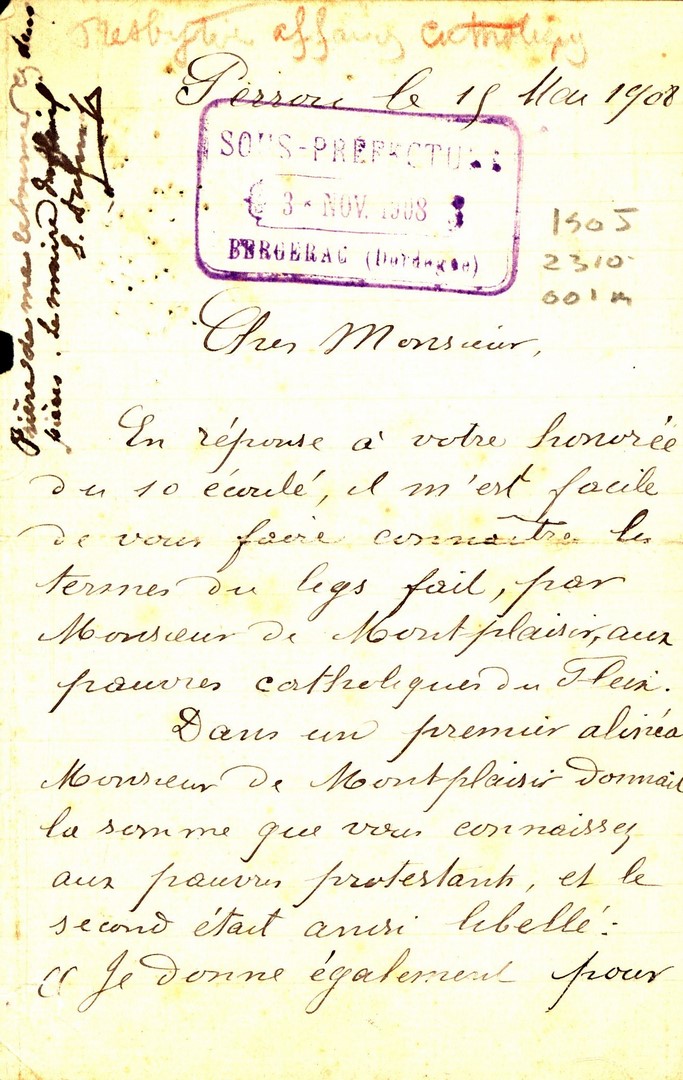 Presbytère affaires catholiques
Perrou le 15 Mai 1908
SOUS-PRÉFECTURE
3 - NOV. 1908
BERGERAC (Dordogne)
1905
2310
001m
Prière de me retourner ces deux
pièces. Le maire du Fleix.
Cher Monsieur,
En réponse à votre honorée
du 10 écoulé, il m'est facile
de vous faire connaître les
termes du legs fait, par
Monsieur de Montplaisir, aux
pauvres catholiques du Fleix.
Dans un premier alinéa
Monsieur de Montplaisir donnait
la somme que vous connaissez
aux pauvres protestants, et le
second était ainsi libellé :
« Je donne également pour